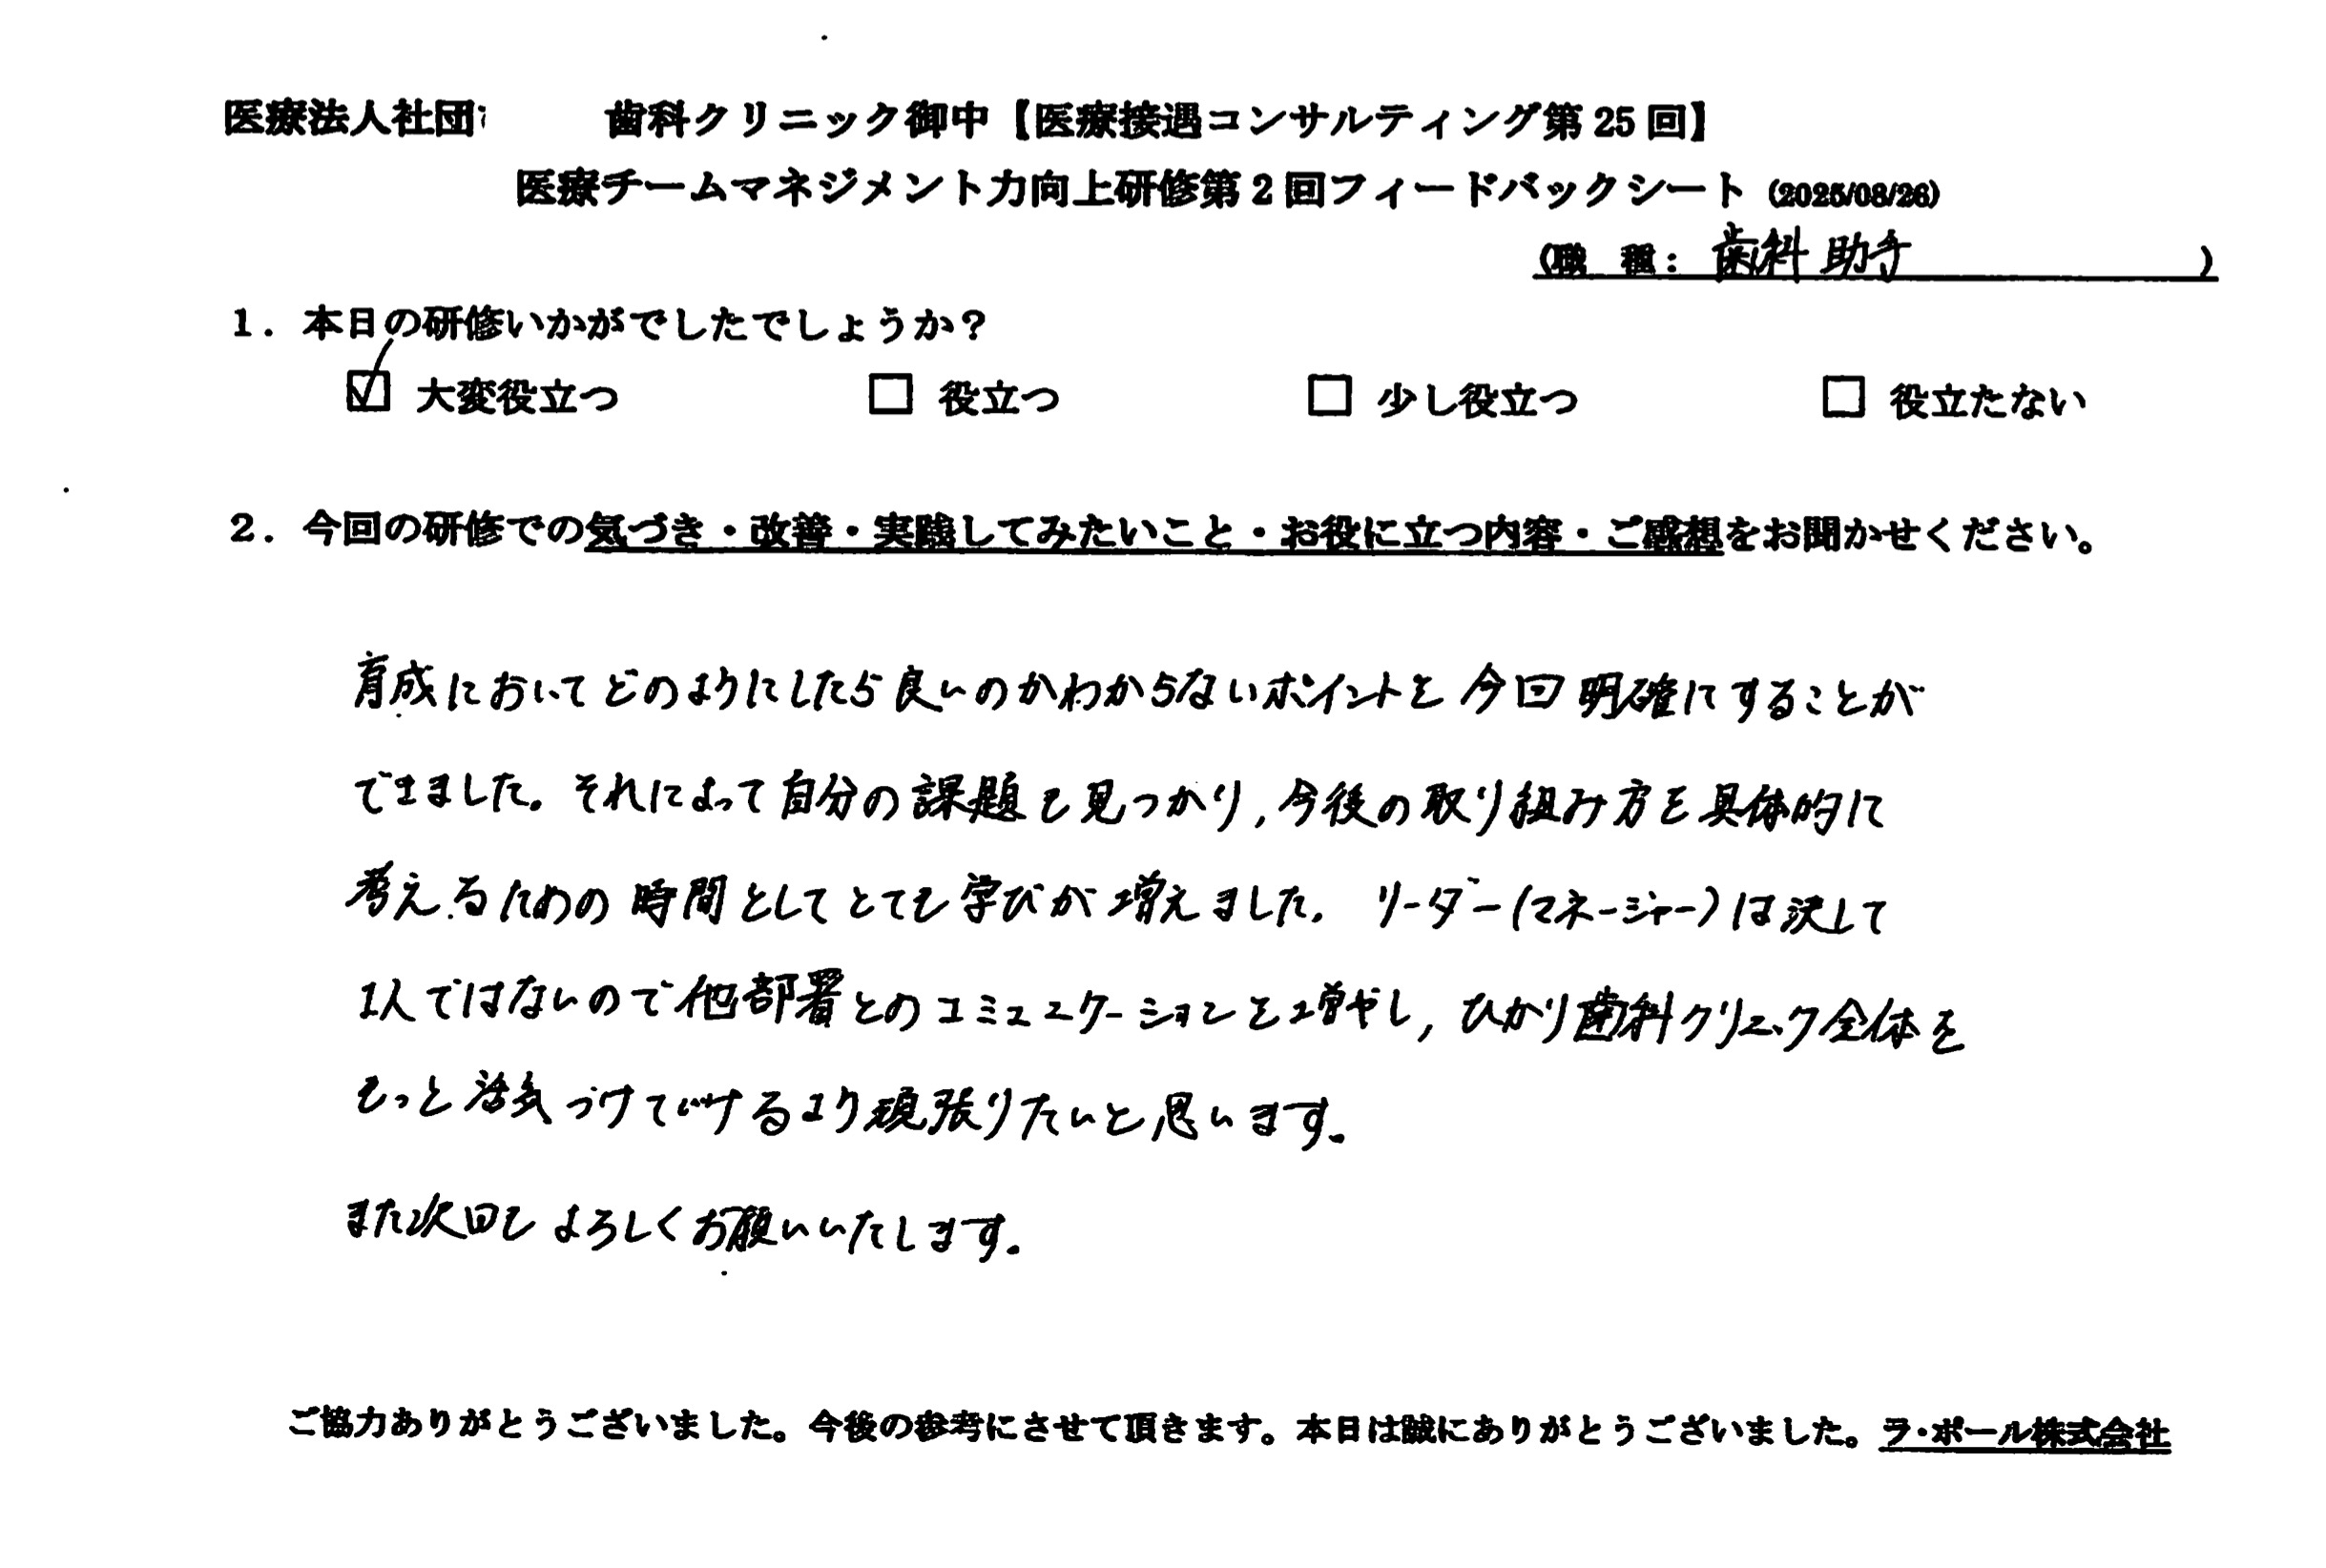 医療法人社団 歯科クリニック御中【医療接遇コンサルティング第25回】
医療チームマネジメント力向上研修第2回フィードバックシート (2025/08/26)
(職 種: 歯科助手 )
1. 本日の研修いかがでしたでしょうか?
☑ 大変役立つ □ 役立つ □ 少し役立つ □ 役立たない
2. 今回の研修での気づき・改善・実践してみたいこと・お役に立つ内容・ご感想をお聞かせください。
育成においてどのようにしたら良いのかわからないポイントを今回明確にすることが
できました。それによって自分の課題も見つかり,今後の取り組み方を具体的に
考えるための時間としてとても学びが増えました。リーダー(マネージャー)は決して
1人ではないので他部署とのコミュニケーションを増やし,ひかり歯科クリニック全体を
もっと活気づけていけるよう頑張りたいと思います。
また次回もよろしくお願いいたします。
ご協力ありがとうございました。今後の参考にさせて頂きます。本日は誠にありがとうございました。ラ・ポール株式会社